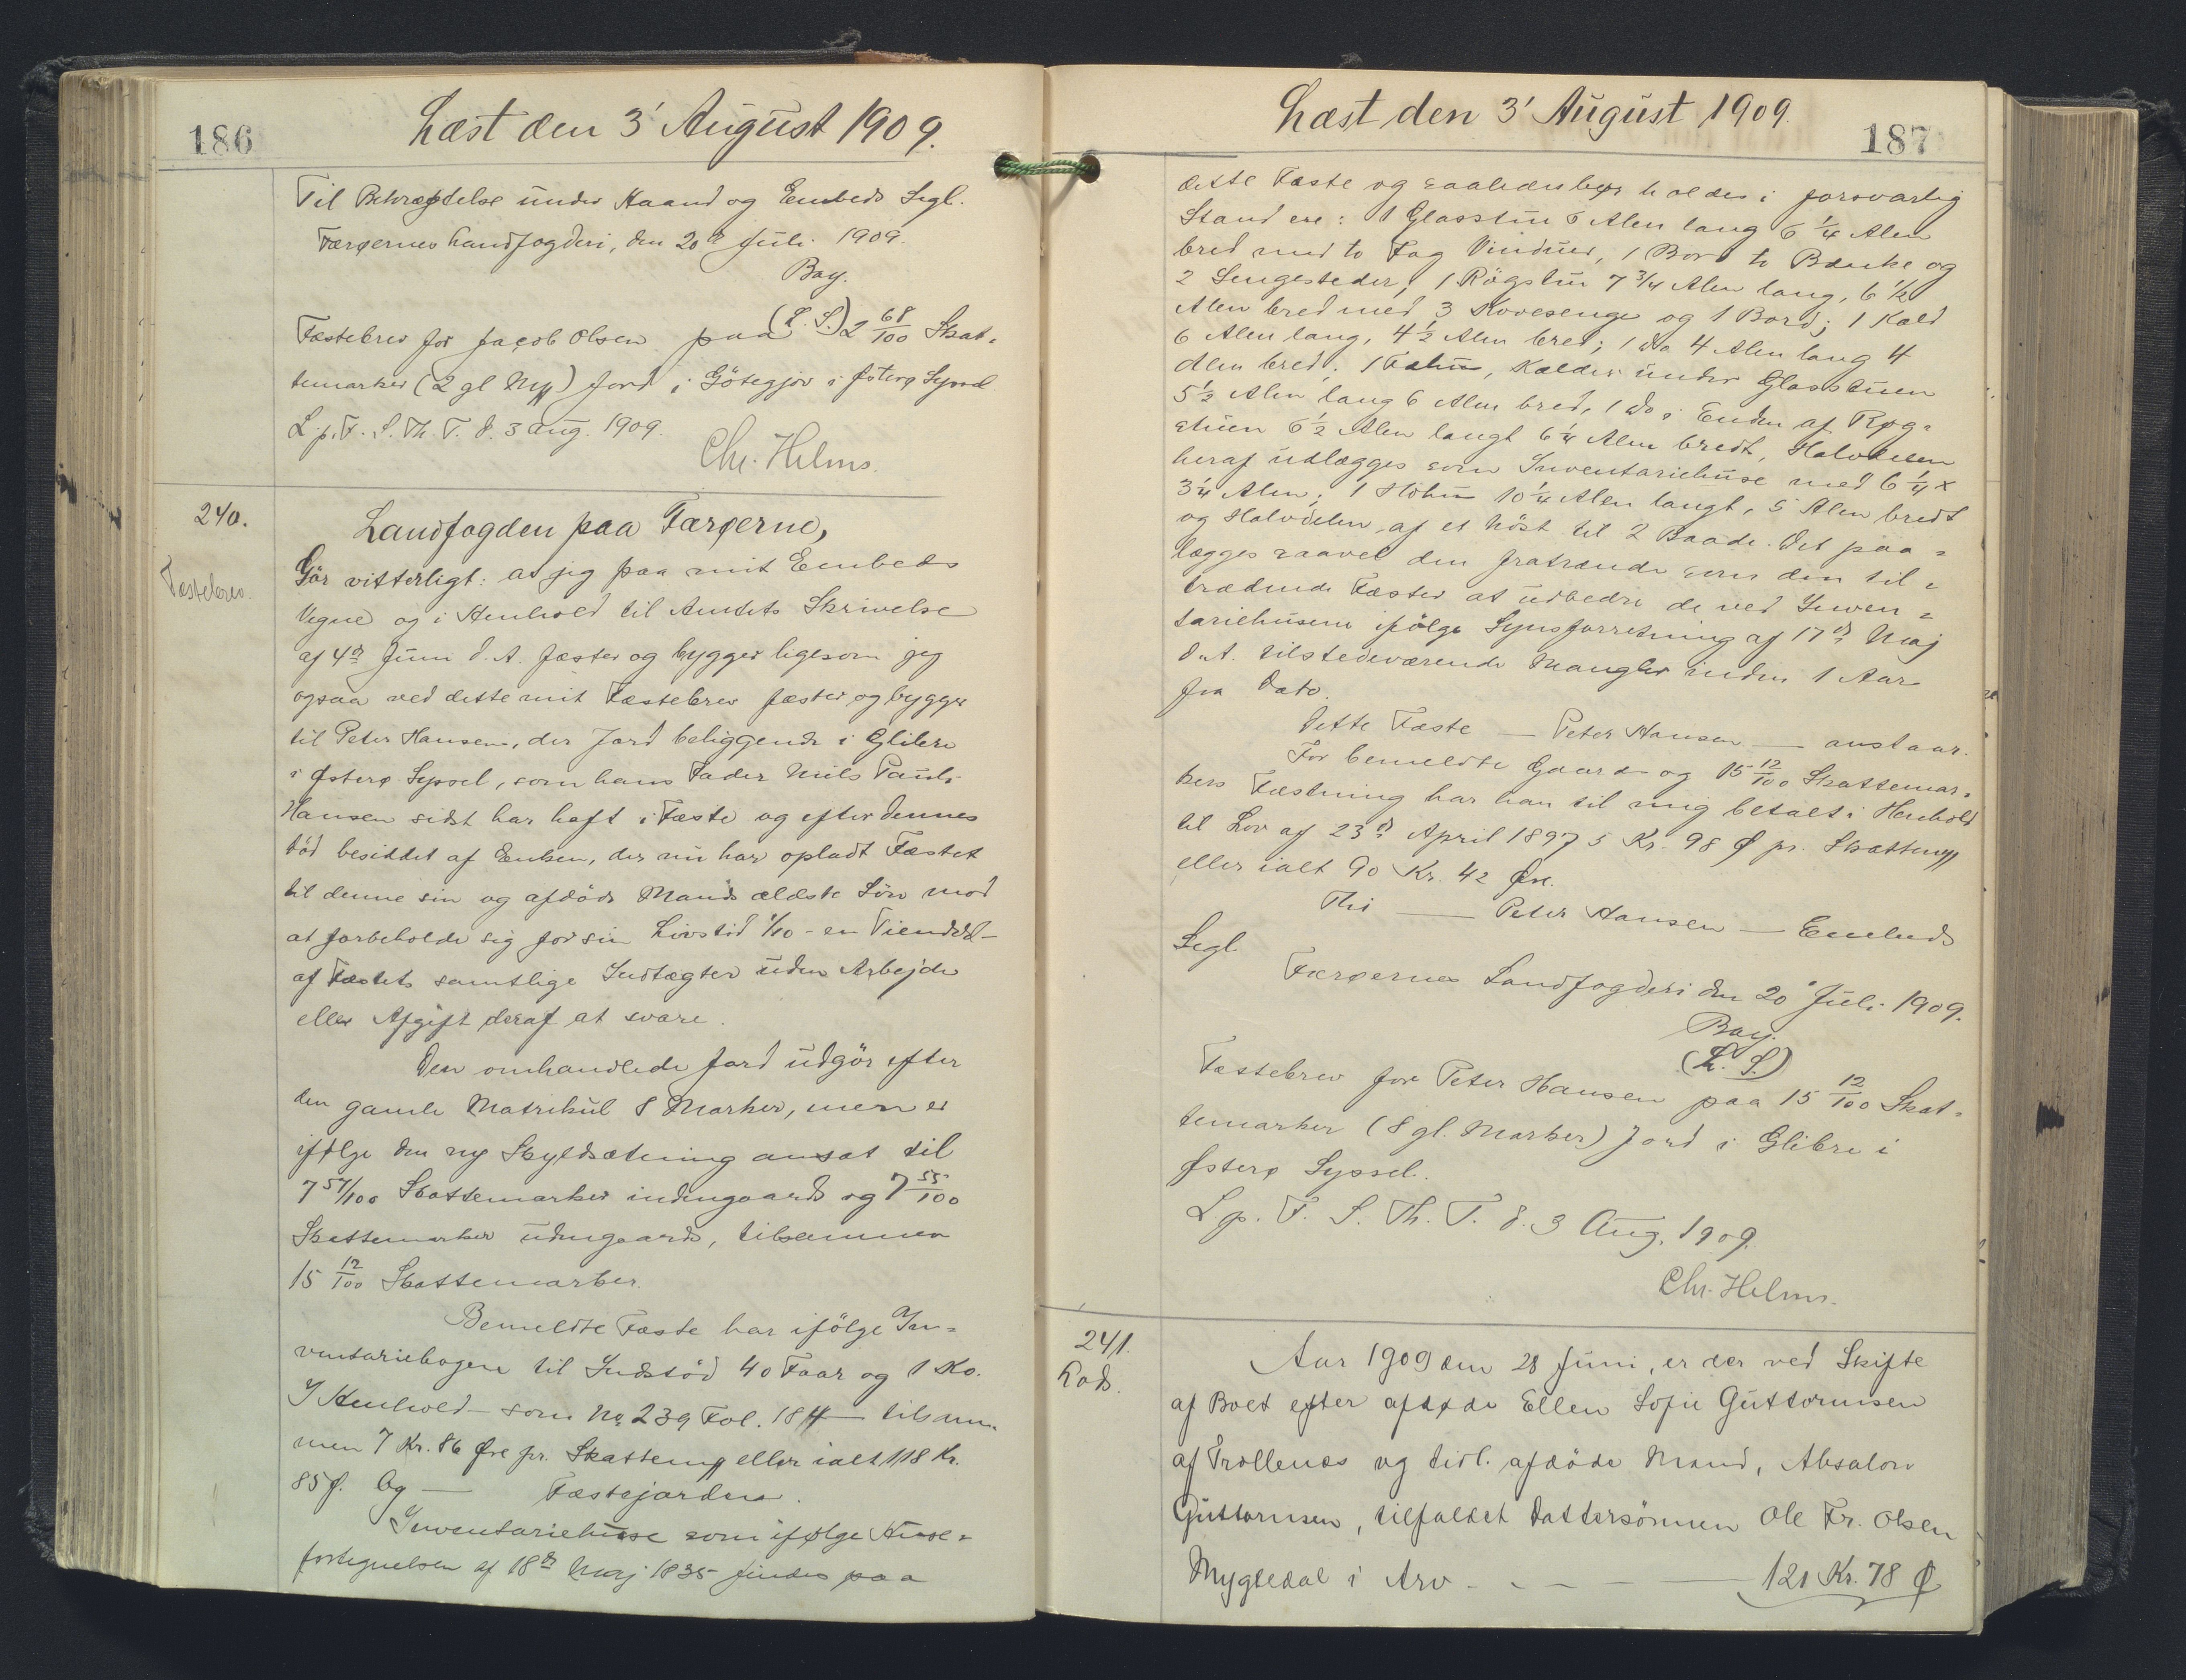 186
Læst den 3' August 1909.
Til Bekræftelse under Haand og Embeds Segl.
Færøernes Landfogderi, den 20d Juli 1909.
Bay.
(L. S.)
Fæstebrev for Jacob Olsen paa 2 68/100 Skat=
temarker (2 gl Mk) Jord i Götegjov i Østerø Syssel
L. p. F. S. Th. T. d. 3 Aug. 1909.
Chr. Helms.
240.
Fæstebrev.
Landfogden paa Færøerne,
Gör vitterligt: at jeg paa mit Embeds
Vegne og i Henhold til Amtets Skrivelse
af 4de Juni d. A. fæster og bygger ligesom jeg
ogsaa ved dette mit Fæstebrev fæster og bygger
til Peter Hansen, der Jord beliggende i Glibre
i Østerø Syssel, som hans Fader Niels Pauli
Hansen sidst har haft i Fæste og efter dennes
död besiddet af Enken, der nu har opladt Fæstet
til denne sin og afdöde Mands ældste Sön mod
at forbeholde sig for sin Livstid 1/10 - en Tiendedel -
af Fæstets samtlige Indtægter uden Arbejde
eller Afgift deraf at svare.
Den omhandlede Jord udgör efter
den gamle Matrikul 8 Marker, men er
ifølge den ny Skyldsætning ansat til
7 57/100 Skattemarker indengaards og 7 55/100
Skattemarker udengaards, tilsammen
15 12/100 Skattemarker.
Bemeldte Fæste har ifölge In=
ventariebogen til Indstöd 40 Faar og 1 Ko.
I Henhold - som No 239 Fol. 184 - tilsam=
men 7 Kr. 86 Øre pr. Skattemk eller ialt 118 Kr.
85 Ø. Og — Fæstejorden.
Inventariehuse som ifølge Huse=
fortegnelsen af 18de Maj 1835 findes paa
187
Læst den 3' August 1909.
dette Fæste og saaledes bør holdes i forsvarlig
Stand ere: 1 Glasstue 5 Alen lang 6 1/4 Alen
bred med to Fag Vinduer, 1 Bord to Bænke og
2 Sengesteder; 1 Rögstue 7 3/4 Alen lang, 6 1/2
Alen bred med 3 Kovesenge og 1 Bord; 1 Kald
6 Alen lang, 4 1/2 Alen bred; 1 do 4 Alen lang 4
Alen bred; 1 Kælder under Glasstuen
5 1/2 Alen lang 6 Alen bred, 1 do i Enden af Røg=
stuen 6 1/2 Alen langt 6 1/4 Alen bredt, Halvdelen
heraf udlægges som Inventariehuse med 6 1/4 x
3 1/4 Alen; 1 10 1/4 Alen langt, 5 Alen bredt
og Halvdelen af et Nöst til 2 Baade. Det paa=
lægges saavel den fratrædende som den til=
trædende Fæster at udbedre de ved Inven=
tariehusene ifölge Synsforretning af 17de Maj
d. A. tilstedeværende Mangler inden 1 Aar
fra Dato.
Dette Fæste — Peter Hansen — anstaar.
For bemeldte Gaard og 15 12/100 Skattemar=
kers Fæstning har han til mig betalt i Henhold
til Lov af 23d April 1897 5 Kr. 98 Ø pr. Skattemk
eller ialt 90 Kr. 42 Øre.
Thi — Peter Hansen — Embeds
Segl.
Færøernes Landfogderi den 20' Juli 1909.
Bay.
(L. S.)
Fæstebrev for Peter Hansen paa 15 12/100 Skat=
temarker (8 gl. Marker) Jord i Glibre i
Østerø Syssel.
L. p. F. S. Th. T. d. 3 Aug. 1909.
Chr. Helms.
241.
Lods.
Aar 1909 den 28 Juni, er der ved Skifte
af Boet efter afdøde Ellen Sofie Guttormsen
af Trollenæs og tidl. afdöde Mand, Absalon
Guttormsen, tilfaldet Dattersönnen Ole Fr. Olsen
Mygledal i Arv - - - — 121 Kr. 78 Ø